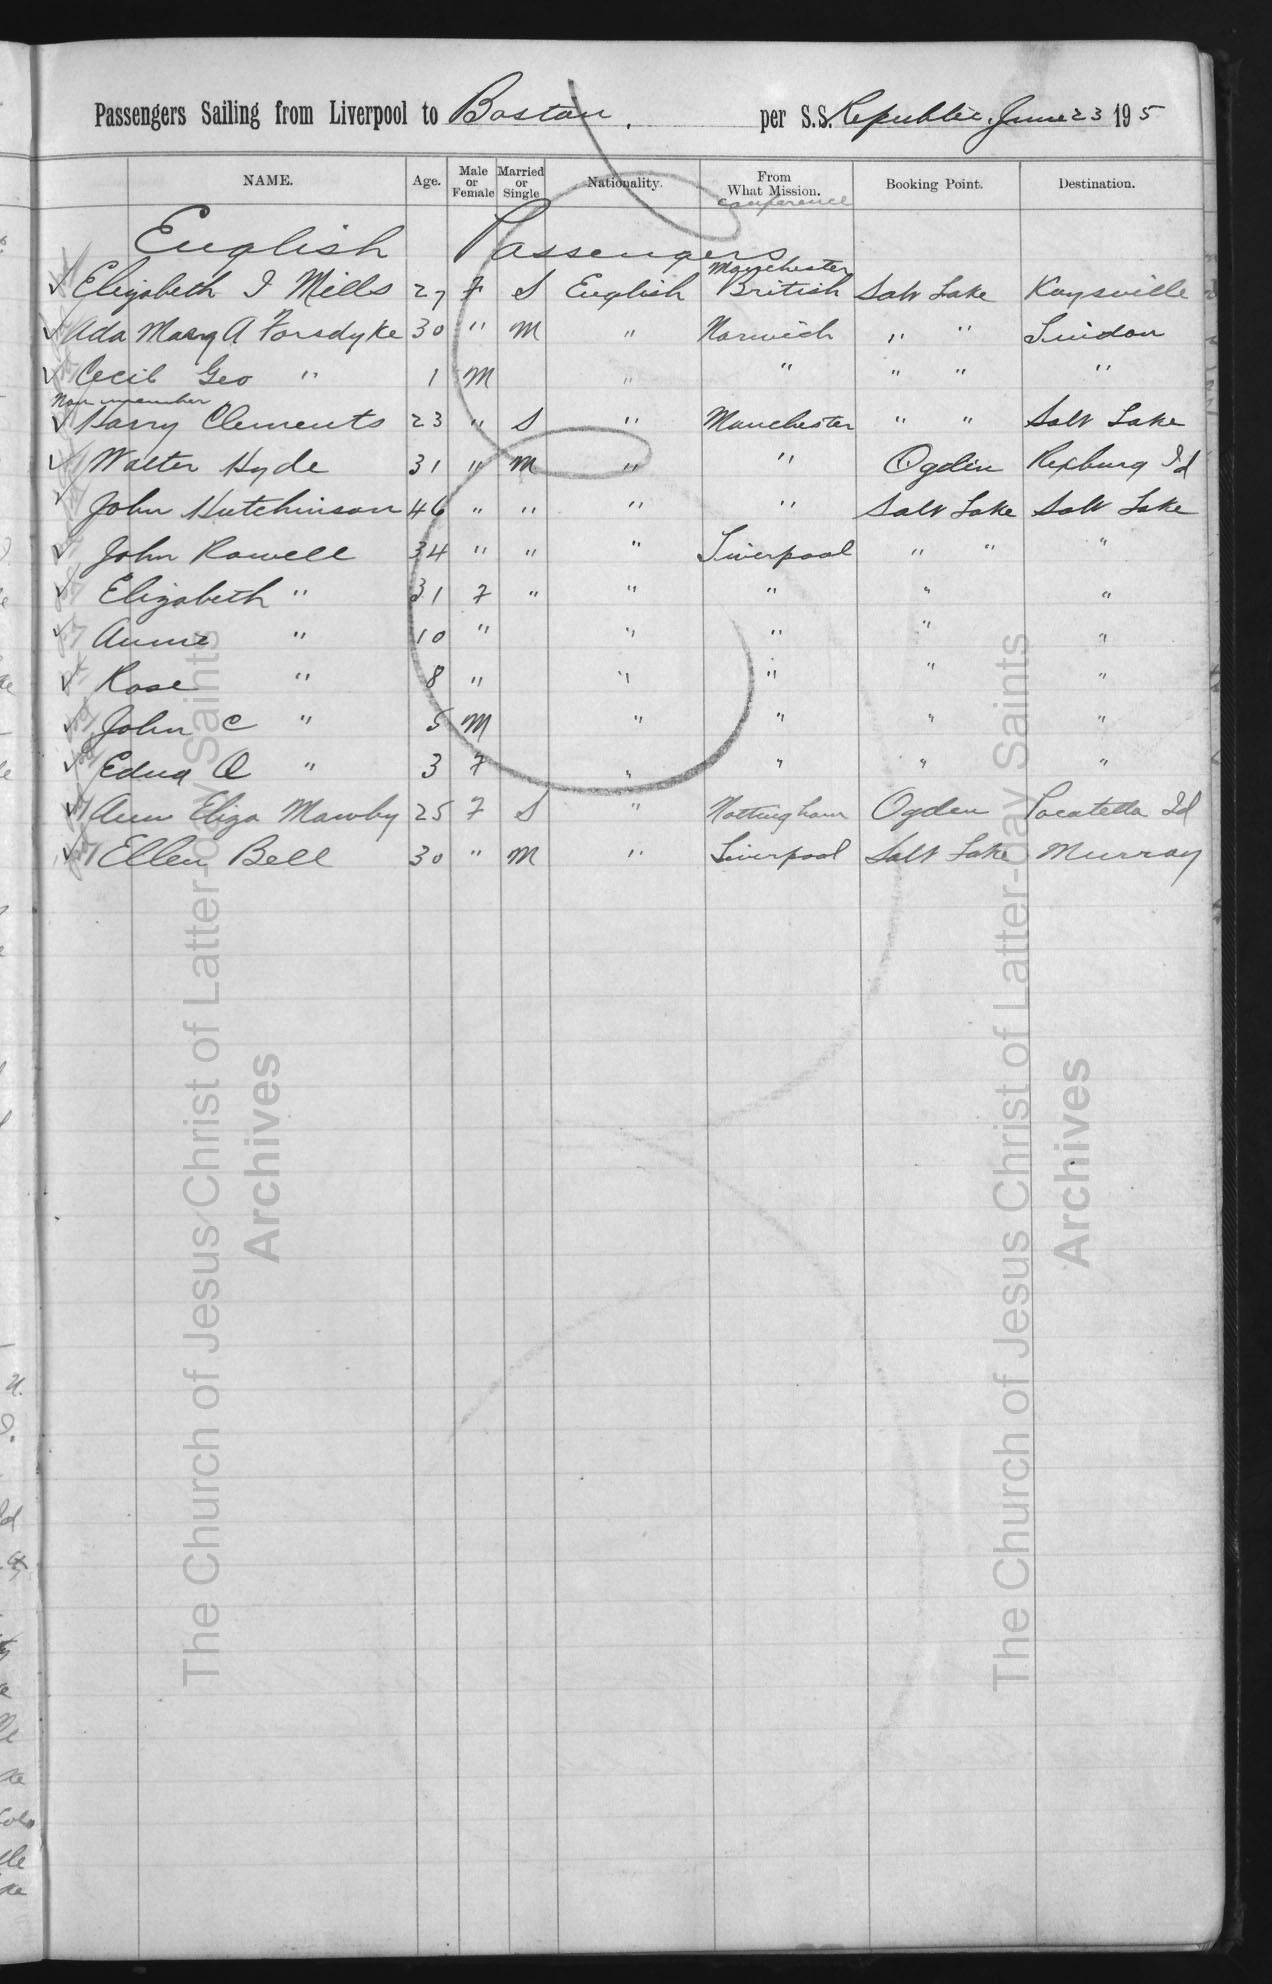 Passengers Sailing from Liverpool to Boston. per S.S. Republic. June 23 195
NAME. Age. Male or Female Married or Single Nationality. From What Mission. Booking Point. Destination.
conference
English Passengers
Manchester
Elizabeth I Mills 27 F S English British Salt Lake Kaysville
Ada Mary A Forsdyke 30 " M " Norwich " " Lindon
Cecil Geo " 1 M " " " " "
Non member
Harry Clements 23 " S " Manchester " " Salt Lake
Walter Hyde 31 " M " " Ogden Rexburg Id
John Hutchinson 46 " " " " Salt Lake Salt Lake
John Rowell 34 " " " Liverpool " " "
Elizabeth " 31 F " " " " "
Annie " 10 " " " " "
Rose " 8 " " " " "
John C " 5 M " " " "
Edna O " 3 F " " " "
Ann Eliza Mawby 25 F S " Nottingham Ogden Pocatella Id
Ellen Bell 30 " M " Liverpool Salt Lake Murray
The Church of Jesus Christ of Latter-day Saints
Archives
The Church of Jesus Christ of Latter-day Saints
Archives